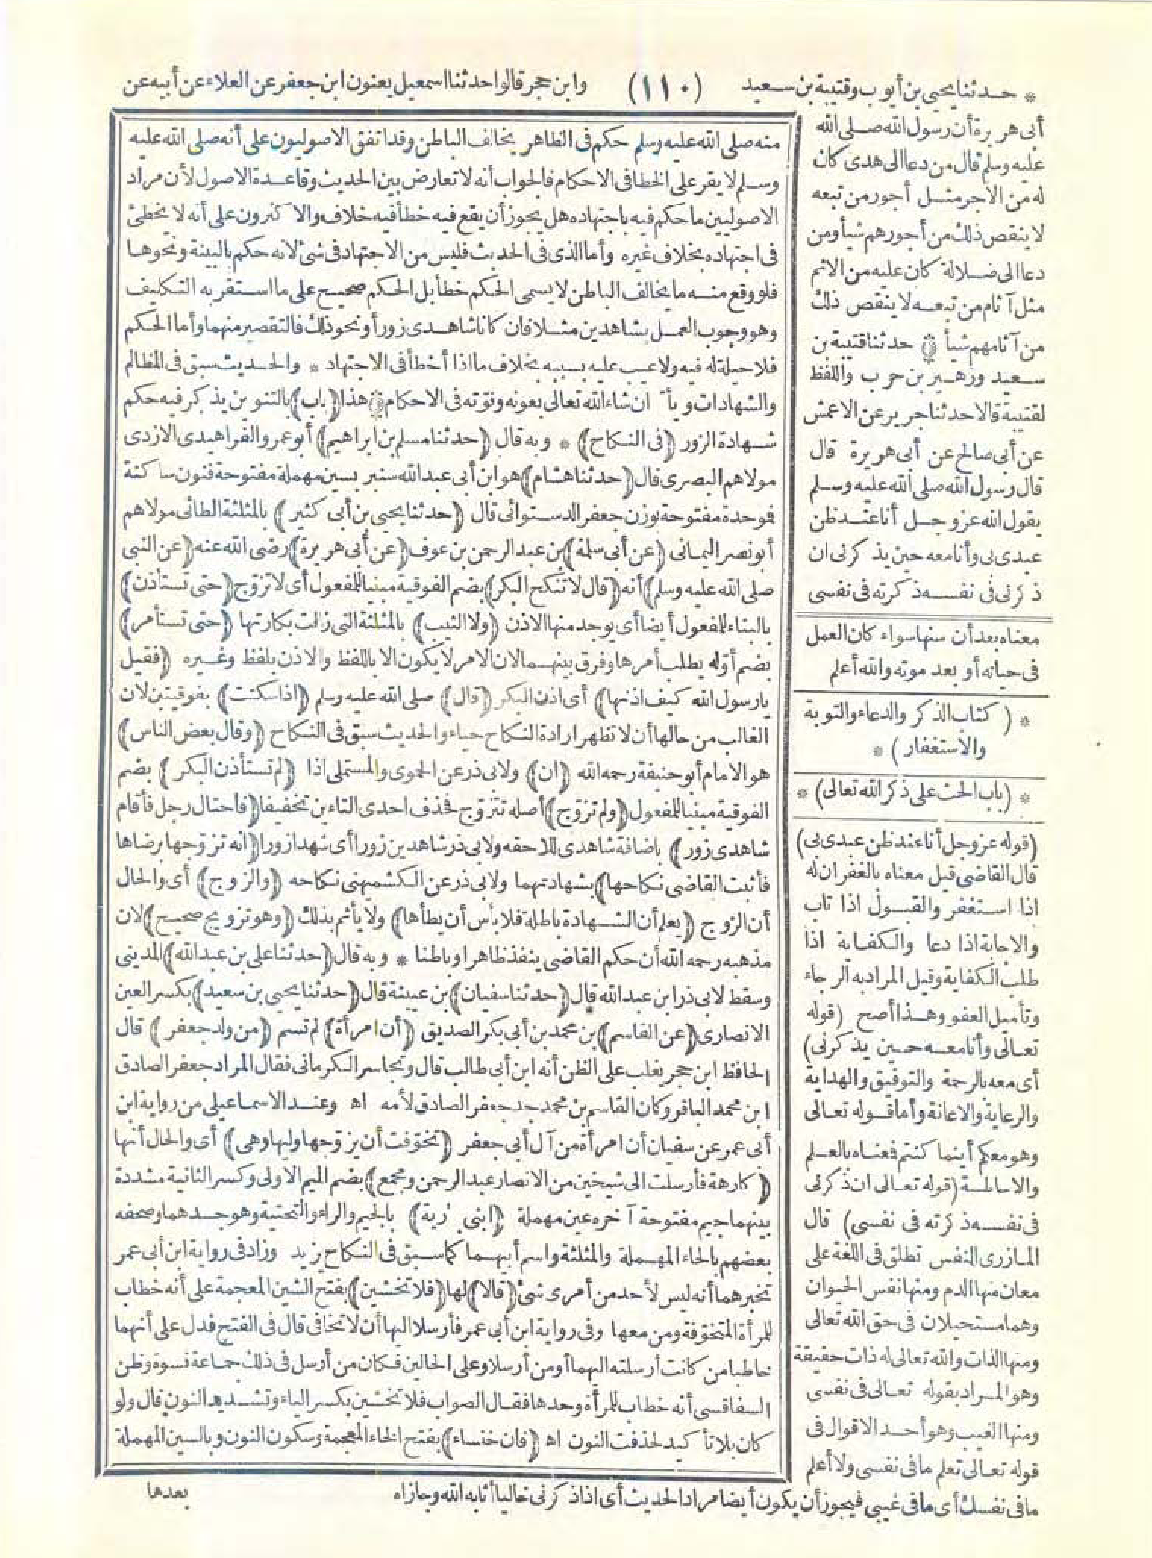 * حدثنا يحيى بن أيوب وقتيبة بن سعيد (١١٠) وابن حجر قالوا حدثنا اسمعيل يعنون ابن جعفر عن العلاء عن أبيه عن
أبى هريرة أن رسول الله صلى الله
عليه وسلم قال من دعا الى هدى كان
له من الاجر مثل أجور من تبعه
لا ينقص ذلك من أجورهم شيأ ومن
دعا الى ضلالة كان عليه من الاثم
مثل آثام من تبعه لا ينقص ذلك
من آثامهم شيأ حدثنا قتيبة بن
سعيد وزهير بن حرب واللفظ
لقتيبة قالا حدثنا جرير عن الاعمش
عن أبى صالح عن أبى هريرة قال
قال رسول الله صلى الله عليه وسلم
يقول الله عز وجل أنا عند ظن
عبدى بى وأنا معه حين يذكرنى ان
ذكرنى فى نفسه ذكرته فى نفسى
معناه بعد أن سنها سواء كان العمل
فى حياته أو بعد موته والله أعلم
* (كتاب الذكر والدعاء والتوبة
والاستغفار) *
* (باب الحث على ذكر الله تعالى) *
(قوله عز وجل أنا عند ظن عبدى بى)
قال القاضى قيل معناه بالغفران له
اذا استغفر والقبول اذا تاب
والاجابة اذا دعا والكفاية اذا
طلب الكفاية وقيل المراد به الرجاء
وتأميل العفو وهذا أصح (قوله
تعالى وأنا معه حين يذكرنى)
أى معه بالرحمة والتوفيق والهداية
والرعاية والاعانة وأما قوله تعالى
وهو معكم أينما كنتم فمعناه بالعلم
والاحاطة (قوله تعالى ان ذكرنى
فى نفسه ذكرته فى نفسى) قال
المازرى النفس تطلق فى اللغة على
معان منها الدم ومنها نفس الحيوان
وهما مستحيلان فى حق الله تعالى
ومنها الذات والله تعالى له ذات حقيقة
وهو المراد بقوله تعالى فى نفسى
ومنها الغيب وهو أحد الاقوال فى
قوله تعالى تعلم ما فى نفسى ولا أعلم
ما فى نفسك أى ما فى غيبى فيجوز أن يكون أيضا مراد الحديث أى اذا ذكرنى خاليا أثابه الله وجازاه
منه صلى الله عليه وسلم حكم فى الظاهر يخالف الباطن وقد اتفق الاصوليون على أنه صلى الله عليه
وسلم لا يقر على الخطا فى الاحكام فالجواب أنه لا تعارض بين الحديث وقاعدة الاصول لأن مراد
الاصوليين ما حكم فيه باجتهاده هل يجوز أن يقع فيه خطأ فيه خلاف والاكثرون على أنه لا يخطئ
فى اجتهاده بخلاف غيره وأما الذى فى الحديث فليس من الاجتهاد فى شئ لانه حكم بالبينة ونحوها
فلو وقع منه ما يخالف الباطن لا يسمى الحكم خطأ بل الحكم صحيح على ما استقر به التكليف
وهو وجوب العمل بشاهدين مثلا فان كانا شاهدى زور أو نحو ذلك فالتقصير منهما وأما الحكم
فلا حيلة له فيه ولا عيب عليه بسببه بخلاف ما اذا أخطأ فى الاجتهاد * والحديث سبق فى المظالم
والشهادات ان شاء الله تعالى بعونه وقوته فى الاحكام هذا (باب) بالتنوين يذكر فيه حكم
شهادة الزور (فى النكاح) * وبه قال (حدثنا مسلم بن ابراهيم) أبو عمرو الفراهيدى الازدى
مولاهم البصرى قال (حدثنا هشام) هو ابن أبى عبد الله سنبر بسين مهملة مفتوحة فنون ساكنة
فوحدة مفتوحة بوزن جعفر الدستوائى قال (حدثنا يحيى بن أبى كثير) بالمثلثة الطائى مولاهم
أبو نصر اليمانى (عن أبى سلمة) بن عبد الرحمن بن عوف (عن أبى هريرة) رضى الله عنه (عن النبى
صلى الله عليه وسلم) أنه (قال لا تنكح البكر) بضم الفوقية مبنيا للمفعول أى لا تزوج (حتى تستأذن)
بالبناء للمفعول أيضا أى يوجد منها الاذن (ولا الثيب) بالمثلثة التى زالت بكارتها (حتى تستأمر)
بضم أوله يطلب أمرها وفرق بينهما لان الامر لا يكون الا باللفظ والاذن بلفظ وغيره (فقيل
يا رسول الله كيف اذنها) أى اذن البكر (قال) صلى الله عليه وسلم (اذا سكتت) بفوقيتين لان
الغالب من حالها أن لا تظهر ارادة النكاح حياء والحديث سبق فى النكاح (وقال بعض الناس)
هو الامام أبو حنيفة رحمه الله (ان) ولابى ذر عن الحموى والمستملى اذا (لم تستأذن البكر) بضم
الفوقية مبنيا للمفعول (ولم تزوج) أصله تتزوج فحذف احدى التاءين تخفيفا (فاحتال رجل فأقام
شاهدى زور) باضافة شاهدى للاحقه ولابى ذر شاهدين زورا أى شهدا زورا (انه تزوجها برضاها
فأثبت القاضى نكاحها) بشهادتهما ولابى ذر عن الكشميهنى نكاحه (والزوج) أى والحال
أن الزوج (يعلم أن الشهادة باطلة فلا بأس أن يطأها) ولا يأثم بذلك (وهو تزويج صحيح) لان
مذهبه رحمه الله أن حكم القاضى ينفذ ظاهرا وباطنا * وبه قال (حدثنا على بن عبد الله) المدينى
وسقط لابى ذر ابن عبد الله قال (حدثنا سفيان) بن عيينة قال (حدثنا يحيى بن سعيد) بكسر العين
الانصارى (عن القاسم) بن محمد بن أبى بكر الصديق (أن امرأة) لم تسم (من ولد جعفر) قال
الحافظ ابن حجر يغلب على الظن أنه ابن أبى طالب قال وتجاسر الكرمانى فقال المراد جعفر الصادق
ابن محمد الباقر وكان القاسم بن محمد جد جعفر الصادق لأمه اه وعند الاسماعيلى من رواية ابن
أبى عمر عن سفيان أن امرأة من آل أبى جعفر (تخوفت أن يزوجها وليها وهى) أى والحال أنها
(كارهة فأرسلت الى شيخين من الانصار عبد الرحمن ومجمع) بضم الميم الاولى وكسر الثانية مشددة
بينهما جيم مفتوحة آخره عين مهملة (ابنى جارية) بالجيم والراء والتحتية وهو جدهما وصحفه
بعضهم بالحاء المهملة والمثلثة واسم أبيهما كما سبق فى النكاح يزيد وزاد فى رواية ابن أبى عمر
تخبرهما أنه ليس لأحد من أمرى شئ (قالا) لها (فلا تخشين) بفتح الشين المعجمة على أنه خطاب
للمرأة المتخوفة ومن معها وفى رواية ابن أبى عمر فأرسلا اليها أن لا تخافى قال فى الفتح فدل على أنهما
خاطبا من كانت أرسلته اليهما أو من أرسلا وعلى الحالين فكان من أرسل فى ذلك جماعة نسوة وظن
السفاقسى أنه خطاب للمرأة وحدها فقال الصواب فلا تخشين بكسر الياء وتشديد النون قال ولو
كان بلا تأكيد لحذفت النون اه (فان خنساء) بفتح الخاء المعجمة وسكون النون وبالسين المهملة
بعدها